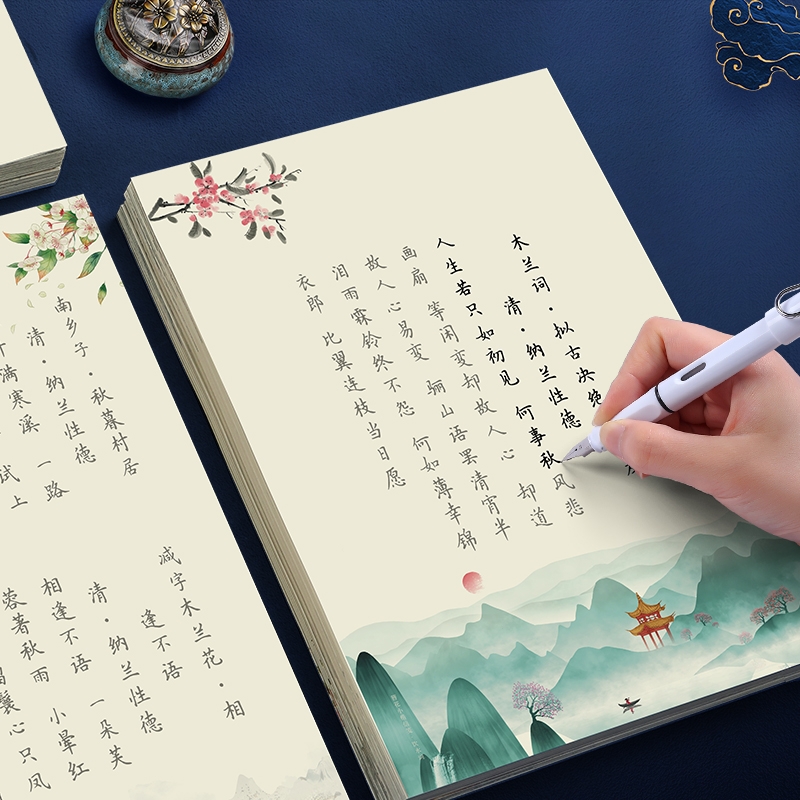 木兰词·拟古决绝
清·纳兰性德
人生若只如初见 何事秋风悲
画扇 等闲变却故人心 却道
故人心易变 骊山语罢清宵半
泪雨霖铃终不怨 何如薄幸锦
衣郎 比翼连枝当日愿
南乡子·秋暮村居
清·纳兰性德
满寒溪 一路
试上
减字木兰花·相
逢不语
清·纳兰性德
相逢不语 一朵芙
蓉著秋雨 小晕红
鬟心 只凤